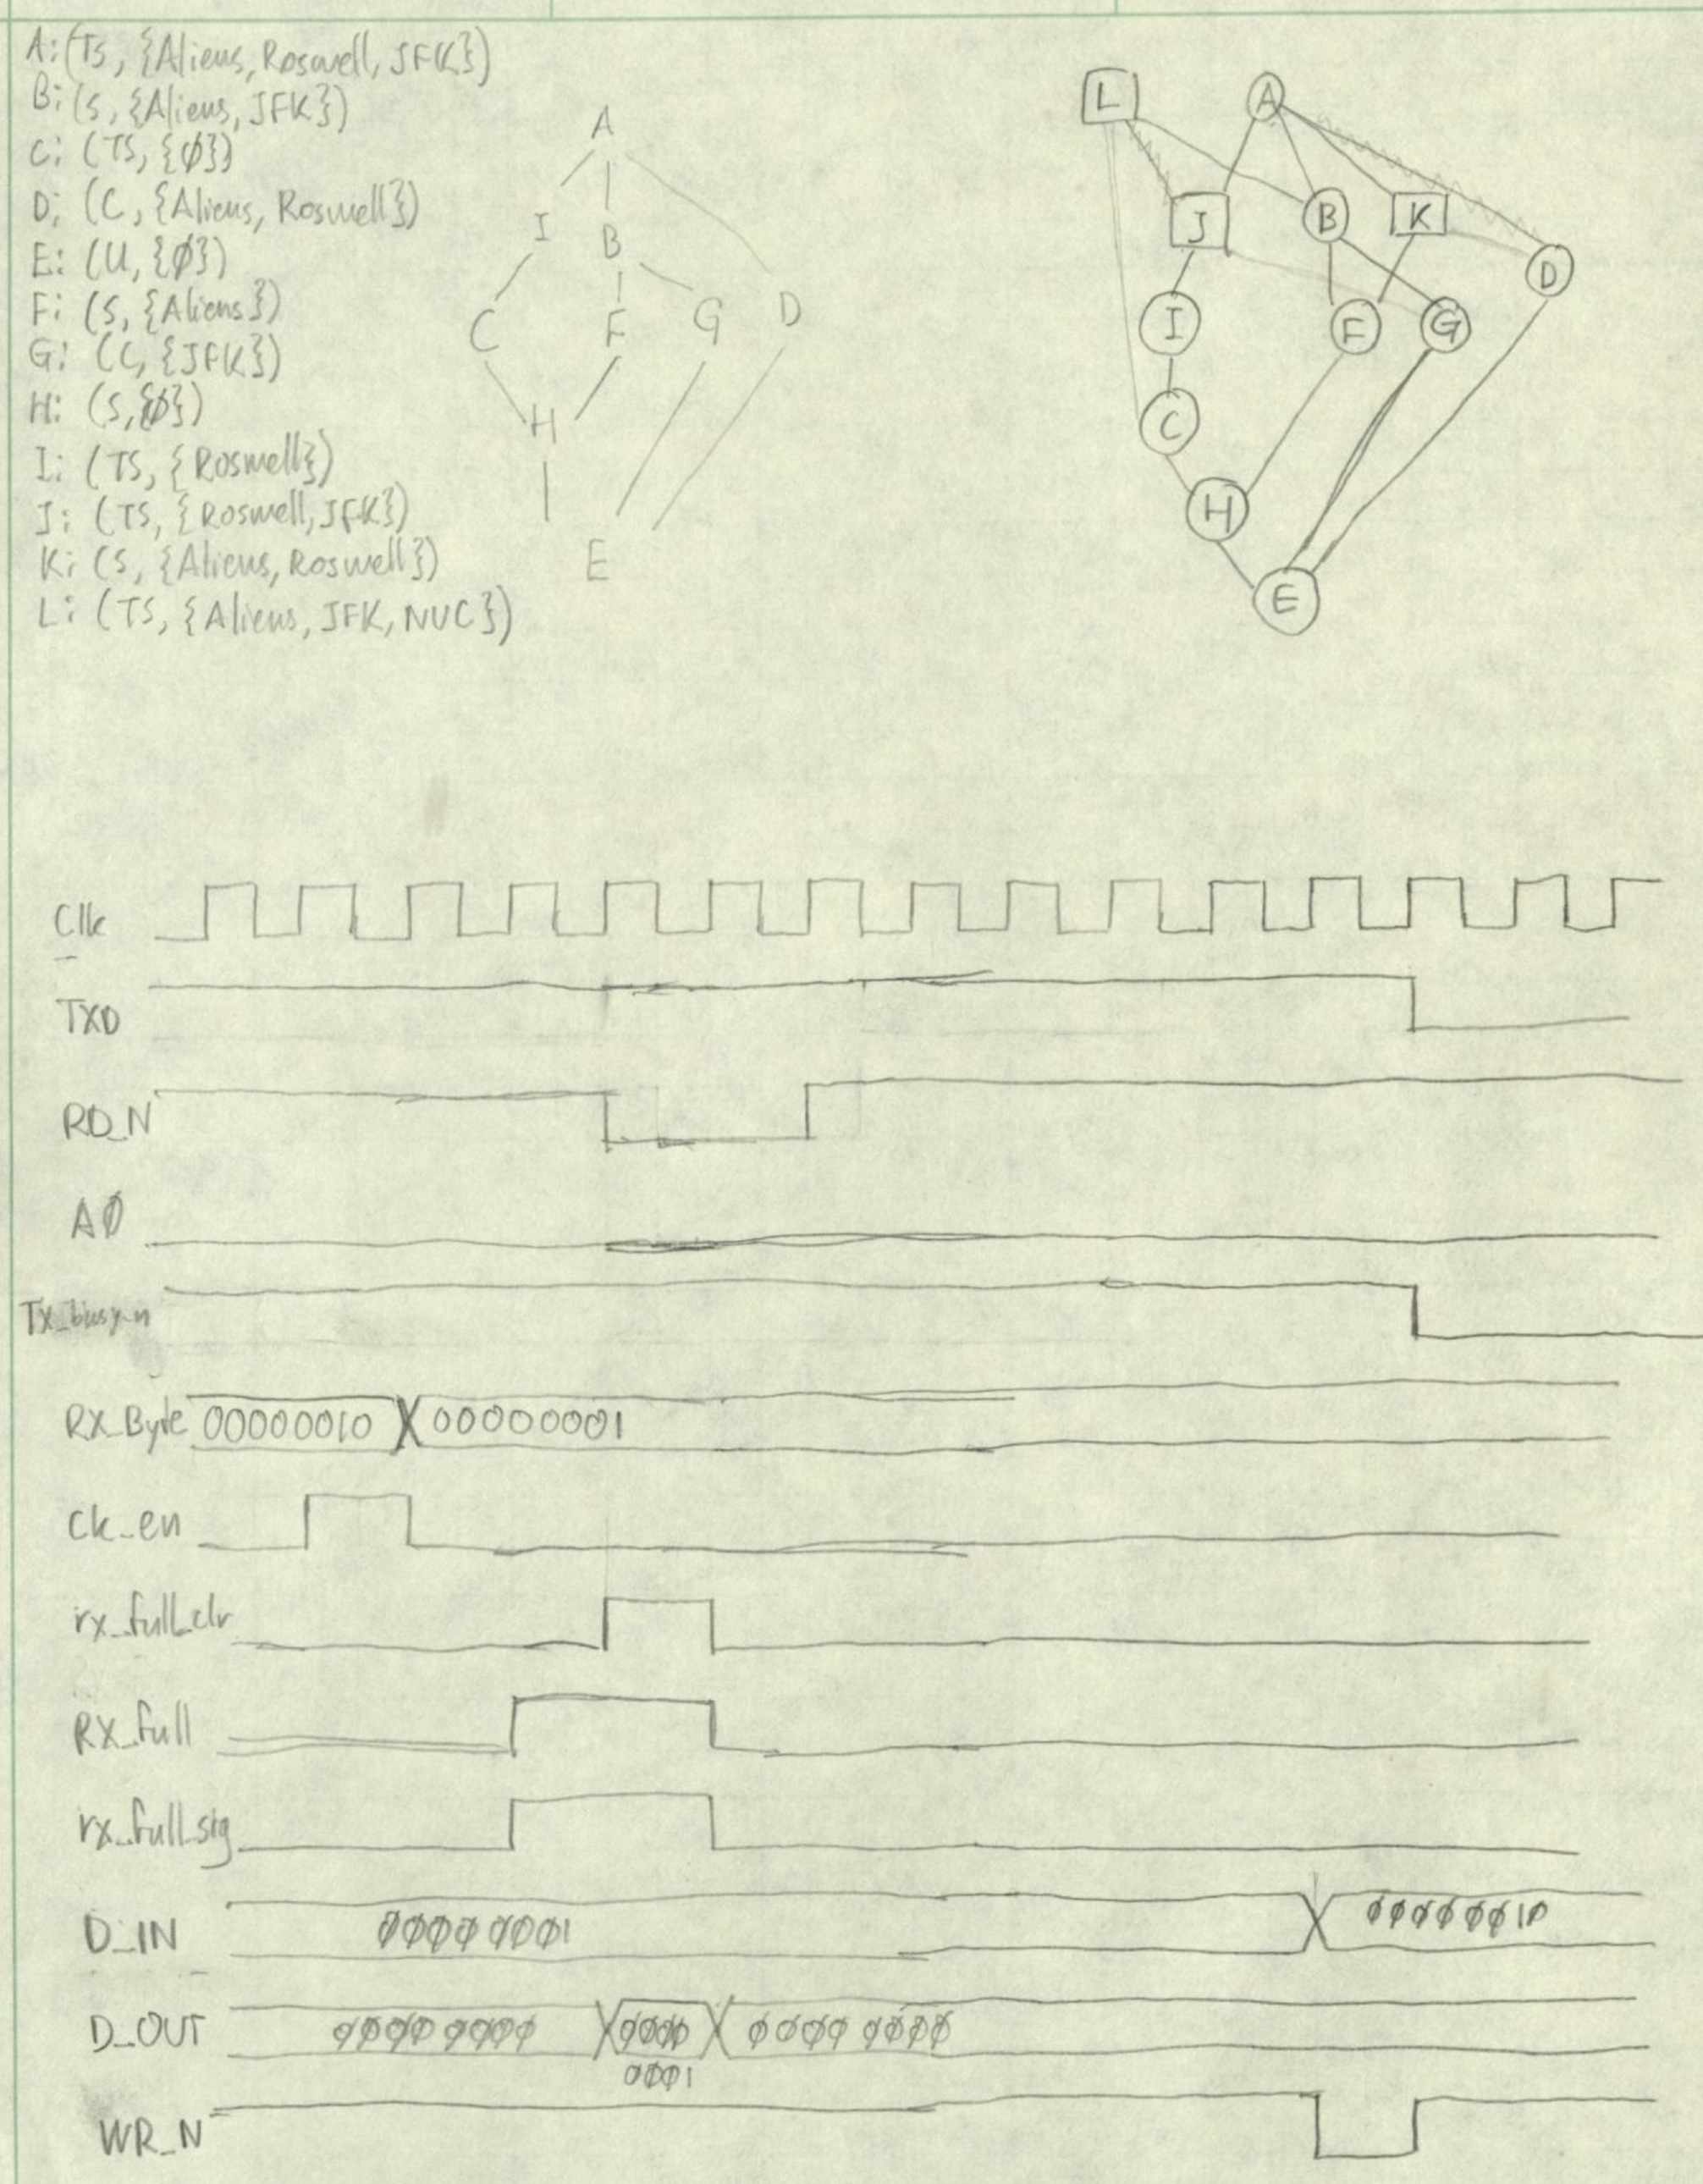 A: (TS, {Aliens, Roswell, JFK})
B: (S, {Aliens, JFK})
C: (TS, {∅})
D: (C, {Aliens, Roswell})
E: (U, {∅})
F: (S, {Aliens})
G: (C, {JFK})
H: (S, {∅})
I: (TS, {Roswell})
J: (TS, {Roswell, JFK})
K: (S, {Aliens, Roswell})
L: (TS, {Aliens, JFK, NUC})
A
I B
C F G D
H
E
L A
J B K
D
I F G
C
H
E
Clk
TXD
RD_N
AØ
Tx_busy_n
RX_Byte 00000010 00000001
Ck_en
rx_full_clr
RX_full
rx_full_sig
D_IN ØØØØ ØØØ1 ØØØØ ØØ1Ø
D_OUT ØØØØ ØØØØ ØØØØ ØØØØ ØØØØ
ØØØ1
WR_N